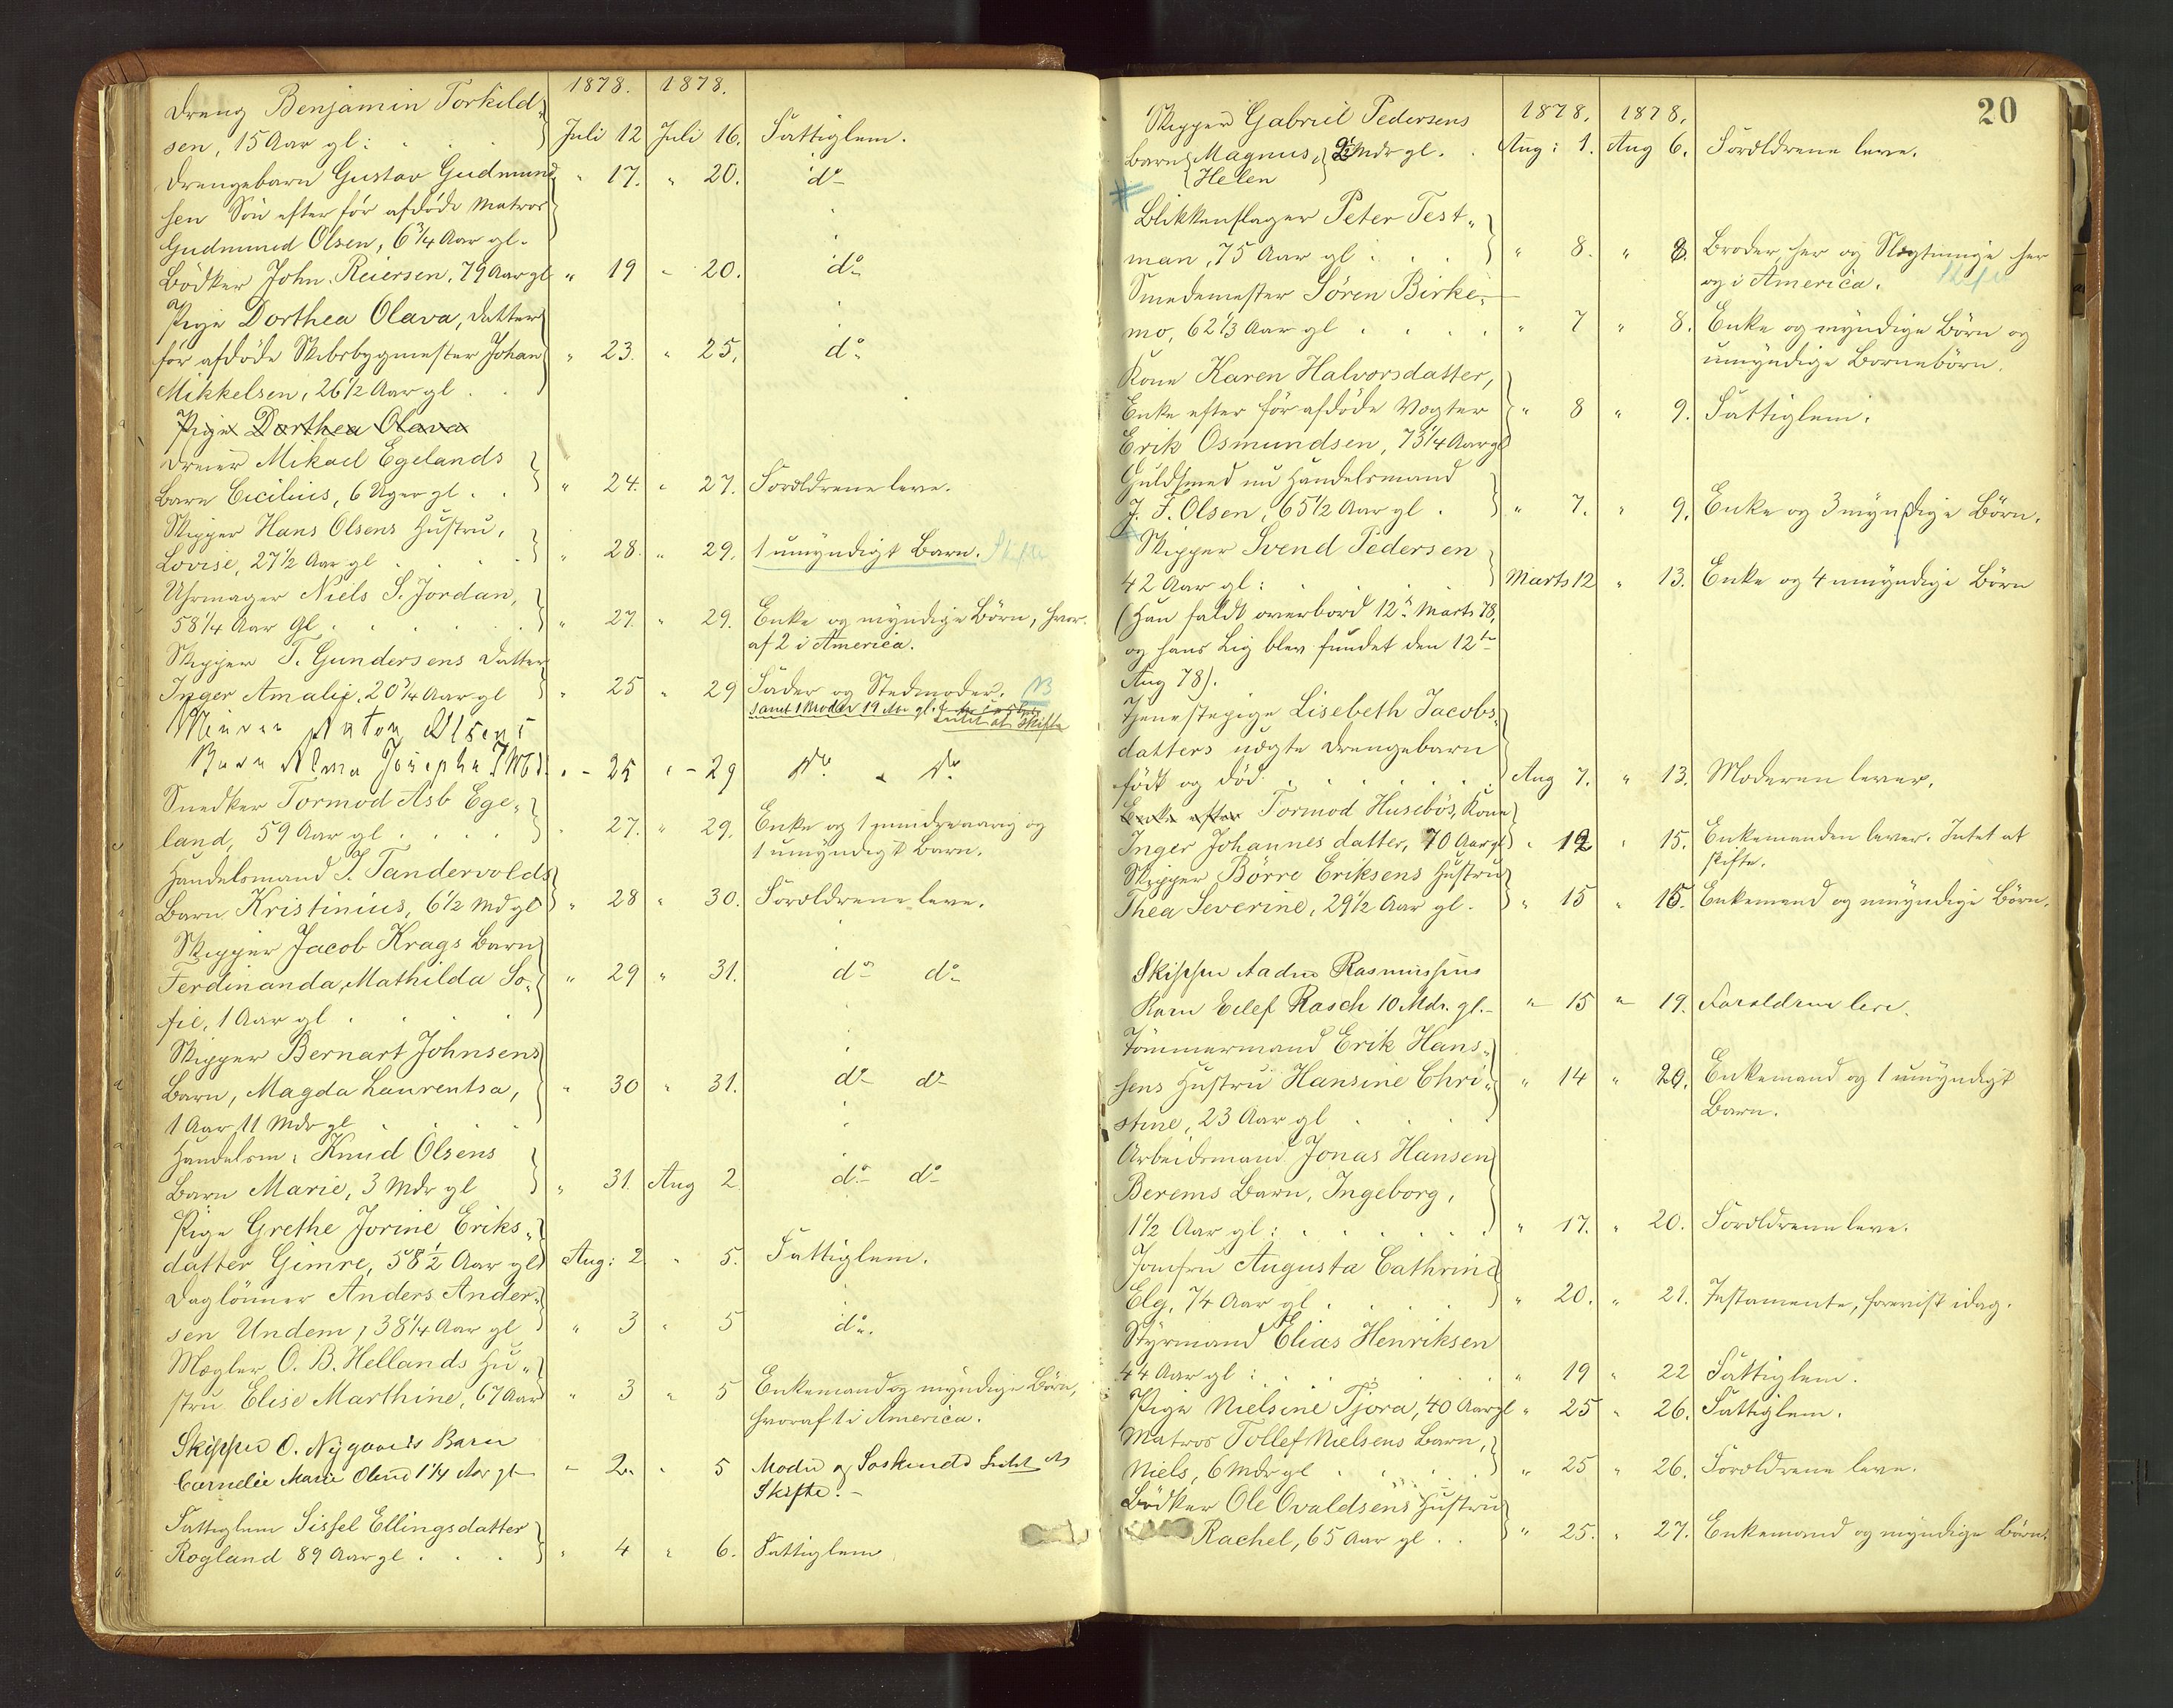 1878. 1878.
Dreng Benjamin Torkild-
sen, 15 Aar gl: Juli 12 Juli 16. Fattiglem.
Drengebarn Gustav Gudmund
sen Sön efter för afdöde Matros " 17. " 20. do
Gudmund Olsen, 6 3/4 Aar gl.
Bödker John Reiersen, 79 Aar gl " 19 " 20. do
Pige Dorthea Olava, Datter
för afdöde Skibsbygmester Johan " 23. " 25. do
Mikkelsen, 26 1/2 Aar gl
Pige Dorthea Olava
Dreier Mikael Egelands
Barn Cicilius, 6 Uger gl. " 24. " 27. Forældrene leve.
Skipper Hans Olsens Hustru,
Lovise, 27 1/2 Aar gl " 28. " 29. 1 umyndigt Barn. Skifte
Uhrmager Niels S. Jordan,
58 1/4 Aar gl " 27. " 29. Enke og myndige Börn, hvor-
af 2 i America.
Skipper T. Gundersens Datter
Inger Amalie, 20 3/4 Aar gl " 25 " 29 Fader og Stedmoder. NB
samt 1 Broder 19 Aar gl.
Intet at skifte
Minerer Anton Olsens
Barn Alma Josepha 7 Md. " - 25 " - 29 do " do
Snedker Tormod Asb Ege-
land, 59 Aar gl " 27. " 29. Enke og 1 mindreaarig og
1 umyndigt Barn.
Handelsmand J. Tandervolds
Barn Kristinius, 6 1/2 Md gl " 28 " 30. Forældrene leve.
Skipper Jacob Krags Barn
Ferdinanda, Mathilda So- " 29 " 31. do do
fie, 1 Aar gl
Skipper Bernart Johnsens
Barn, Magda Laurentsa, " 30 " 31. do do
1 Aar 11 Mdr gl
Handelsm: Knud Olsens
Barn Marie, 3 Mdr gl " 31. Aug 2 do do
Pige Grethe Jorine Eriks-
datter Gimre, 58 1/2 Aar gl Aug: 2 " 5. Fattiglem.
Daglönner Anders Ander-
sen Undem, 38 1/4 Aar gl " 3 " 5 do.
Mægler O. B. Hellands Hu-
stru Elise Marthine, 67 Aar " 3 " 5 Enkemand og myndige Börn,
hvoraf 1 i America.
Skipper O. Nygaards Barn
Cornelie Marie Olene 1 1/4 Aar gl - 2. " 5 Moder og Söskende Intet at
Skifte. -
Fattiglem Sissel Ellingsdatter
Rogland 89 Aar gl. " 4 " 6. Fattiglem
20
1878. 1878.
Skipper Gabriel Pedersens
Barn Magnus, 2 Mdr gl. Aug: 1. Aug 6. Forældrene leve.
Helen
Blikkenslager Peter Test-
man, 75 Aar gl: " 8. " 8. Broder her og Slægtninge her
og i America.
Smedemester Sören Birke-
mo, 62 1/3 Aar gl " 7 " 8. Enke og myndige Börn og
umyndige Bornebörn.
Kone Karen Halvorsdatter,
Enke efter för afdöde Vogter " 8 " 9. Fattiglem.
Erik Osmundsen, 73 1/4 Aar gl
Guldsmed nu Handelsmand
J. F. Olsen, 65 1/2 Aar gl. " 7. " 9. Enke og 3 myndige Börn.
Skipper Svend Pedersen
42 Aar gl: Marts 12 " 13. Enke og 4 umyndige Börn
(Han faldt overbord 12te Marts 78,
og hans Lig blev fundet den 12te
Aug 78).
Tjenestepige Lisebeth Jacobs-
datters uægte Drengebarn
födt og död Aug 7. " 13. Moderen lever.
Enke efter Tormod Husebös, Kone
Inger Johannes datter, 70 Aar gl " 12 " 15. Enkemanden lever. Intet at
skifte.
Skipper Börre Eriksens Hustru
Thea Severine, 29 1/2 Aar gl. " 15 " 15. Enkemand og umyndige Börn.
Skipper Aadne Rasmussens
Barn Eilef Rasch 10 Mdr. gl. - " 15 " 19. Forældrene leve.
Tömmermand Erik Hans-
sens Hustru Hansine Chri- " 14 " 20. Enkemand og 1 umyndigt
stine, 23 Aar gl Barn.
Arbeidsmand Jonas Hansen
Berems Barn, Ingeborg,
1 1/2 Aar gl: " 17. " 20. Forældrene leve.
Jomfru Augusta Cathrine
Elg, 74 Aar gl " 20. " 21. Testamente, forevist idag.
Styrmand Elias Henriksen
44 Aar gl: " 19 " 22 Fattiglem.
Pige Nielsine Tjora, 40 Aar gl " 25 " 26. Fattiglem.
Matros Tollef Nielsens Barn,
Niels, 6 Mdr gl " 25 " 26. Forældrene leve.
Bödker Ole Ovaldsens Hustru
Rachel, 65 Aar gl. " 25. " 27. Enkemand og myndige Börn.